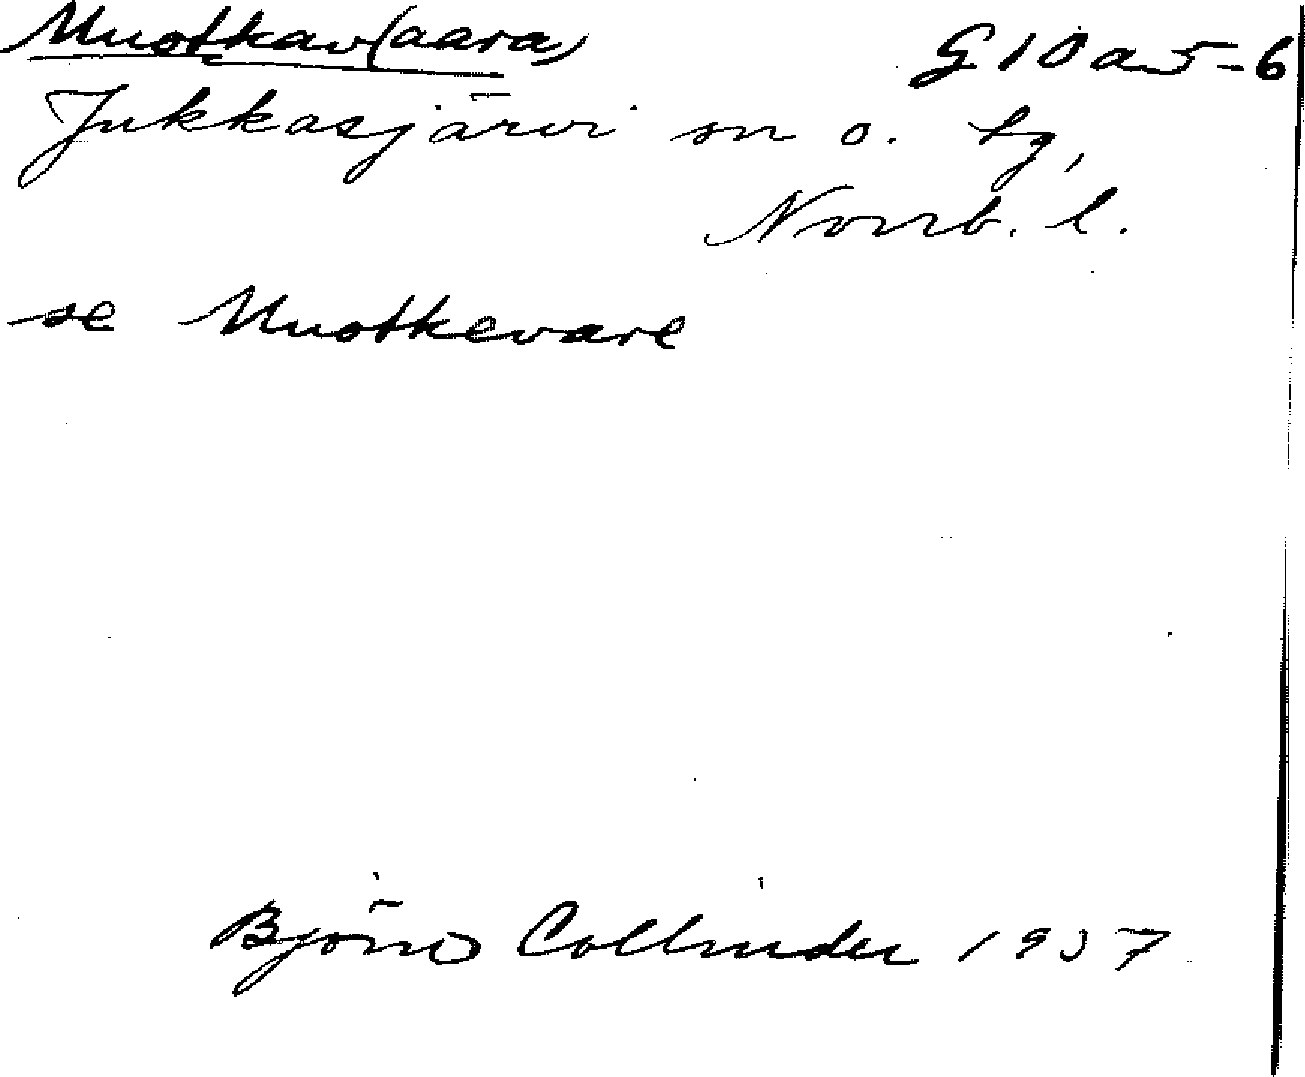 Muotkav(aara) G10a5-6
Jukkasjärvi sn o. tg,
Norrb. l.
se Muotkevare
Björn Collinder 1957